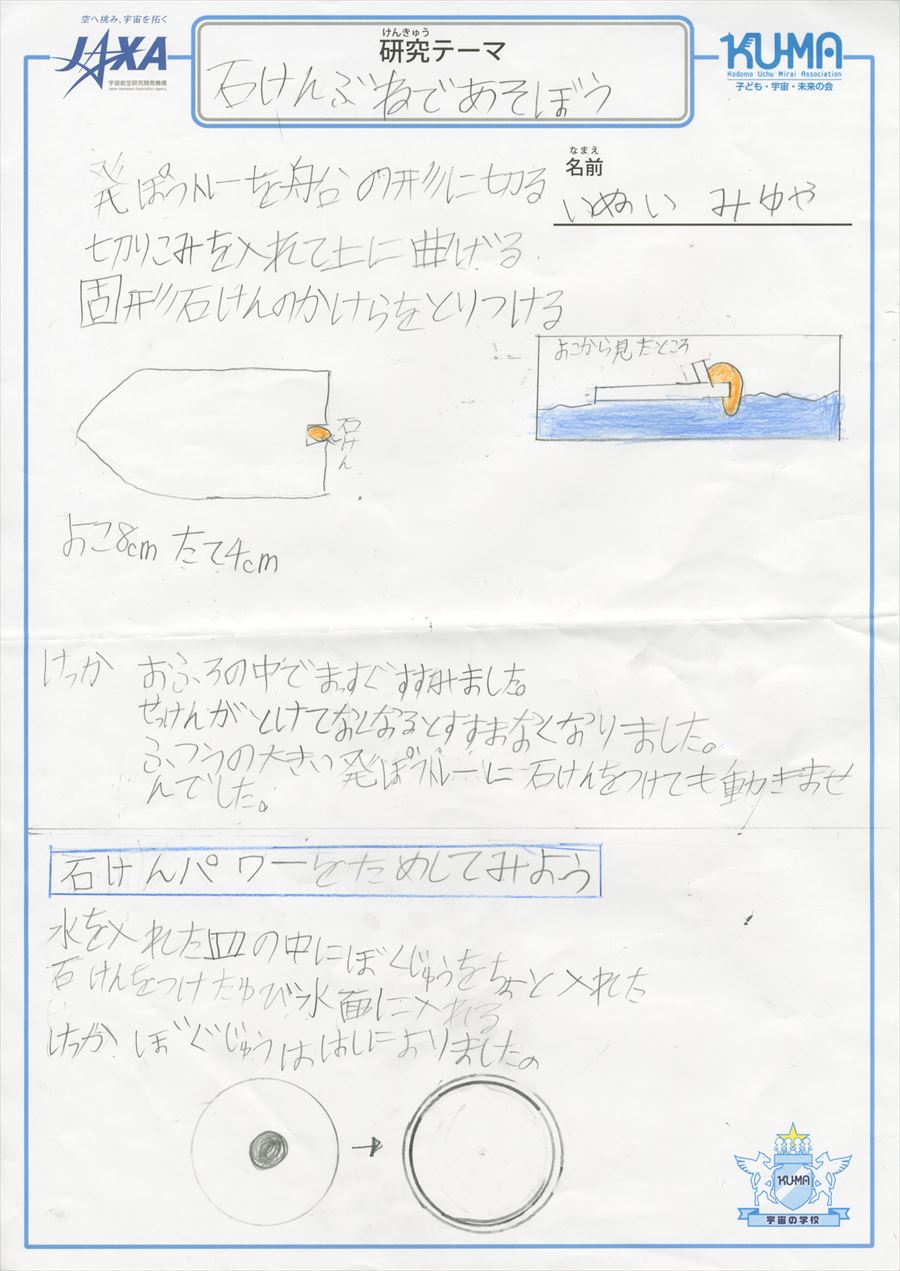 空へ挑み、宇宙を拓く
JAXA
宇宙航空研究開発機構
Japan Aerospace Exploration Agency
けんきゅう
研究テーマ
石けんぶねであそぼう
KU-MA
Kodomo Uchu Mirai Association
子ども・宇宙・未来の会
なまえ
名前
いぬい みゆや
発ぽうトレーを船の形に切る
切りこみを入れて上に曲げる
固形石けんのかけらをとりつける
よこから見たところ
石けん
よこ8cm たて4cm
けっか おふろの中でまっすぐすすみました。
せっけんがとけてなくなるとすすまなくなりました。
ふつうの大きい発ぽうトレーに石けんをつけても動きませ
んでした。
石けんパワーをためしてみよう
水を入れた皿の中にぼくじゅうをちょっと入れた
石けんをつけたゆび水面に入れる
けっか ぼくじゅうははしによりました。
KU-MA
宇宙の学校